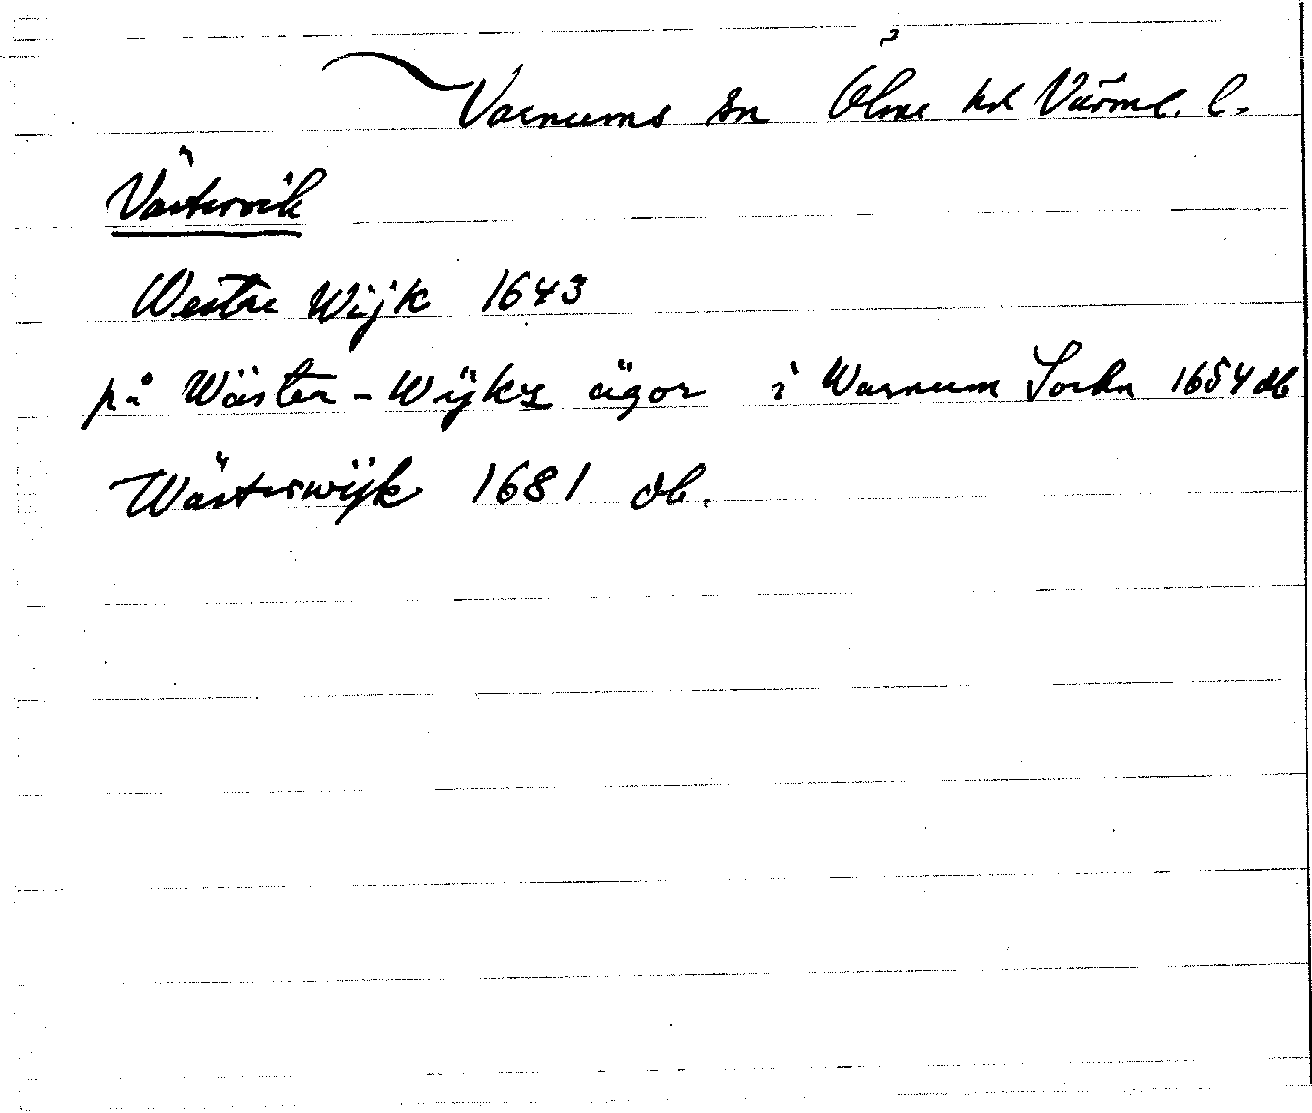 Varnums sn Ölme hd Värml. l.
Västervik
Westre Wijk 1643
på Wäster-Wijkz ägor i Warnum Sockn 1654 db
Wästerwijk 1681 db.